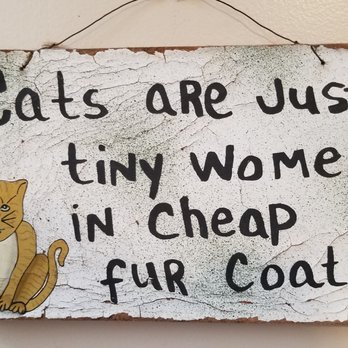 Cats aRe Jus
tiny wome
in cheap
fuR Coat